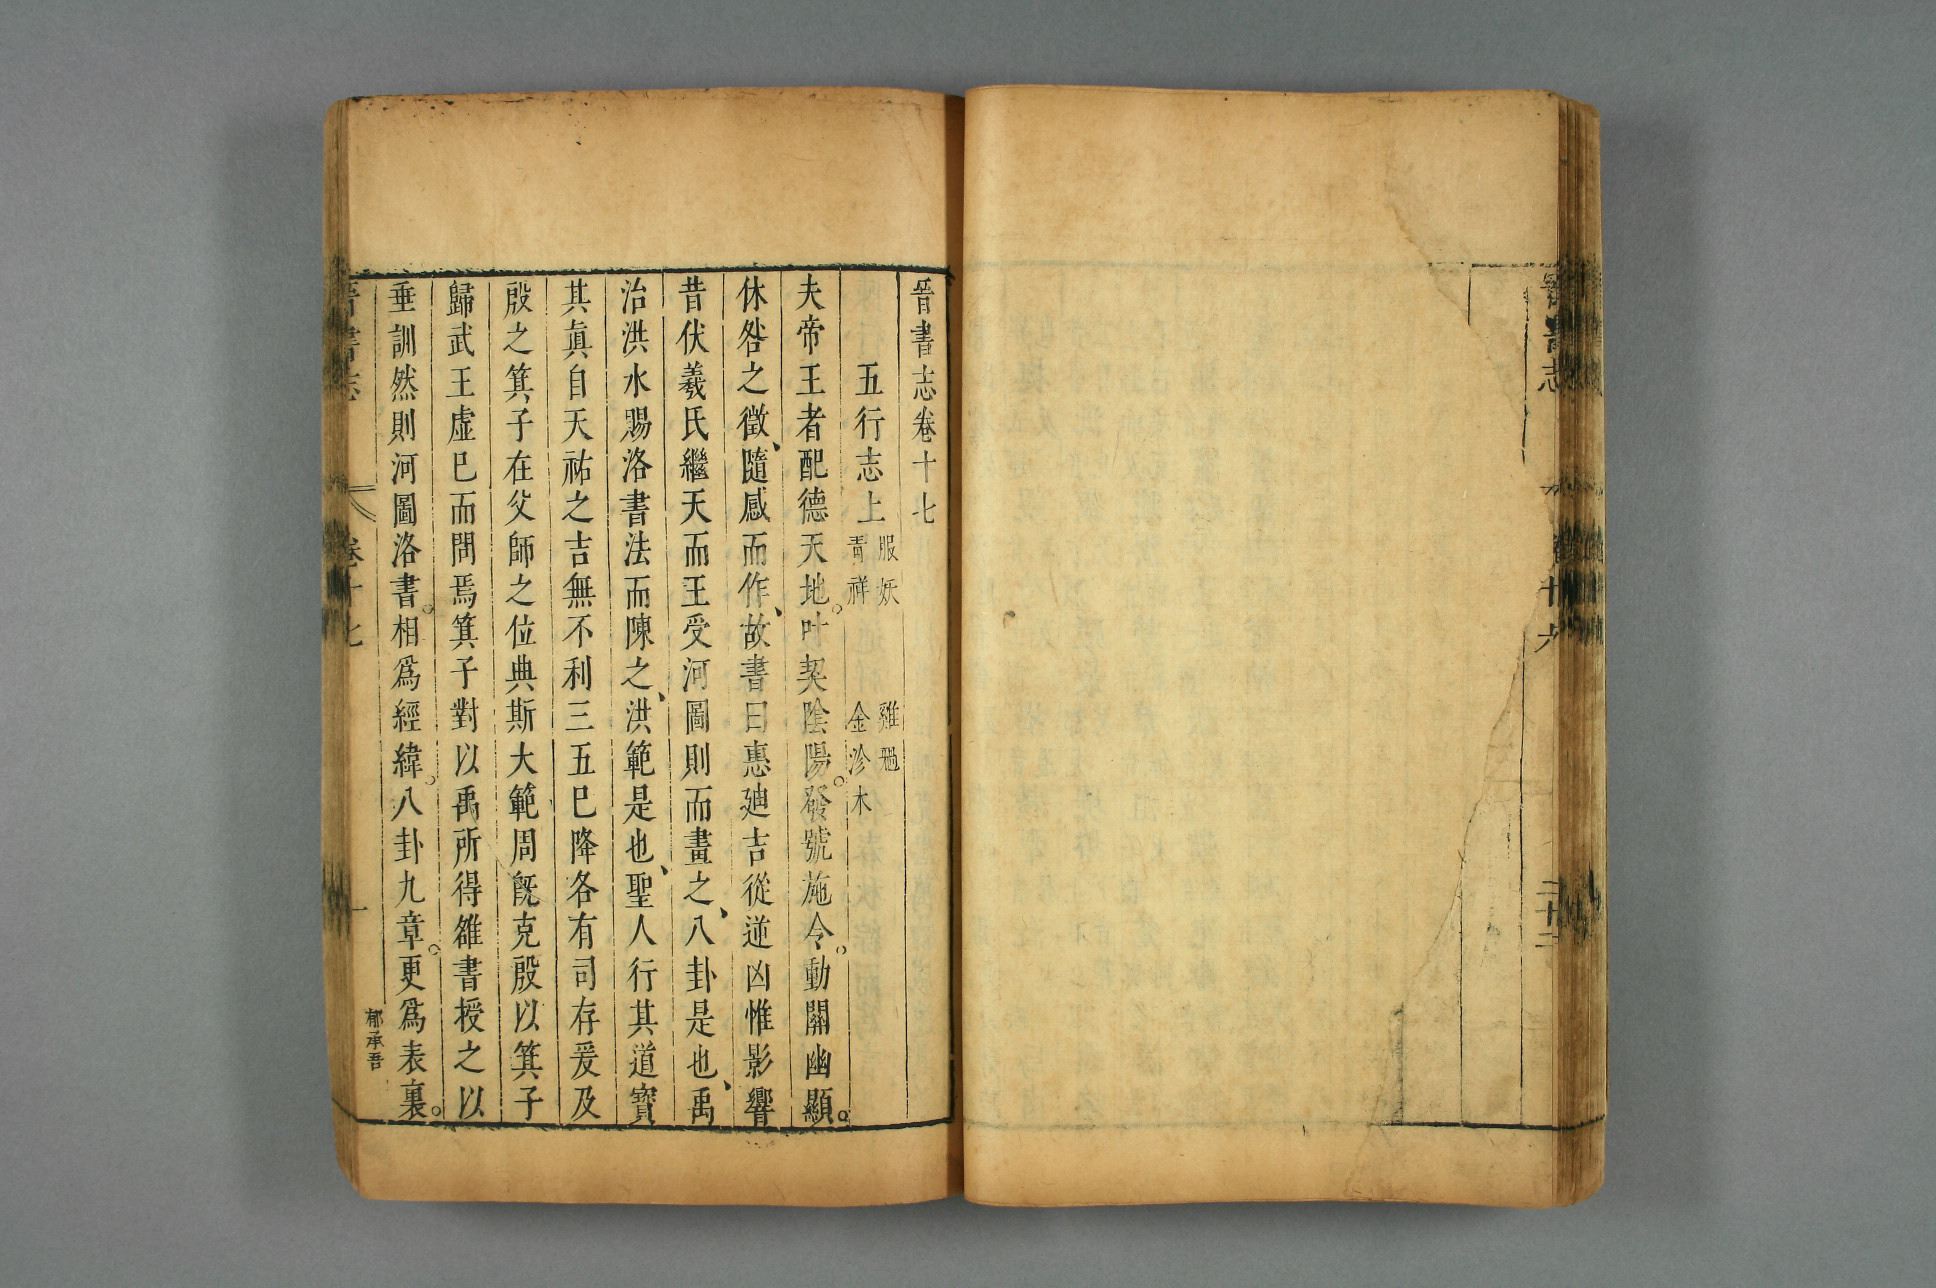 晉書志
卷十六
二十二
晉書志卷十七
五行志上 服妖 雞旤
青祥 金沴木
夫帝王者配德天地。叶契陰陽。發號施令。動關幽顯。
休咎之徵、隨感而作、故書曰惠廸吉從逆凶惟影響
昔伏羲氏繼天而王受河圖則而畫之、八卦是也、禹
治洪水賜洛書法而陳之、洪範是也、聖人行其道寶
其眞自天祐之吉無不利三五巳降各有司存爰及
殷之箕子在父師之位典斯大範周旣克殷以箕子
歸武王虛巳而問焉箕子對以禹所得雒書授之以
垂訓然則河圖洛書。相爲經緯。八卦九章。更爲表裏。
晉書志
卷十七
一
郁承吾